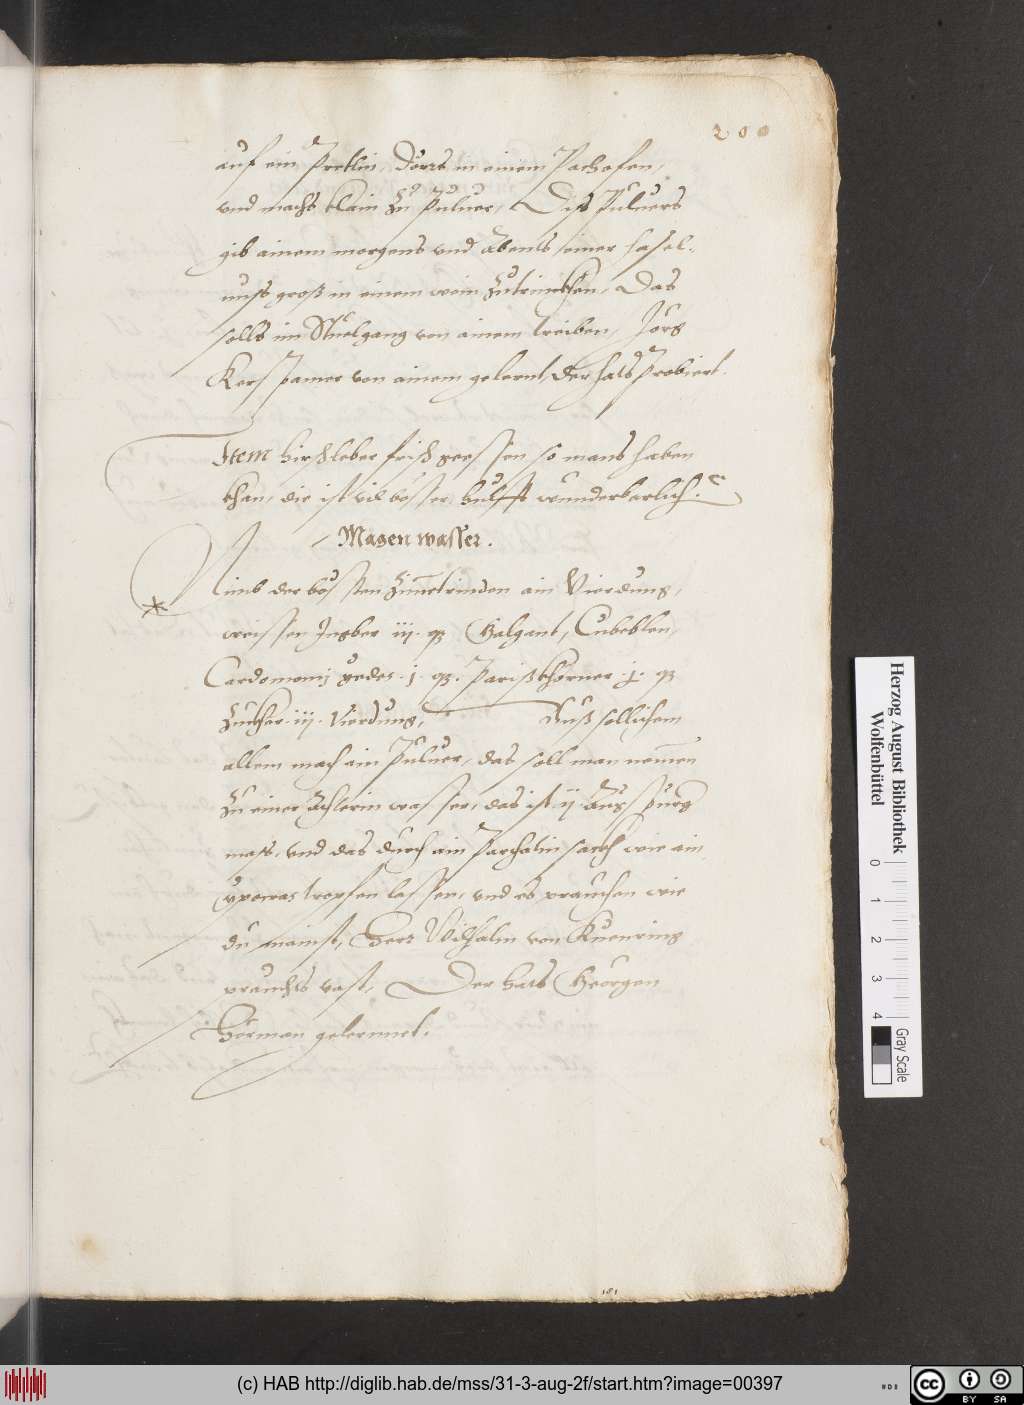 200
auf ein Pretlin, Dörrs in einem Pachofen,
vnd machs klain zu Puluer, Diss Puluers
gib ainem morgens vnd Abents einer hasel-
nuss gross in einem wein zutrinckhen, Das
solls im Stuelgang von ainem treiben, Jörg
Kers Pamer von ainem gelernt, der hats Probiert.
Item hirschleber frisch geessen so mans haben
khan, die ist vil bösser, hülfft wunderbarlich.
Magen wasser.
Nimb der bössten Zimetrinden ain Vierdung,
weissen Ingber iij. q Galgant, Cubeblen,
Cardomomj yedes .j. q. Parisskhörner .j. q
Zucker .iij. Vierdung, Auss sollichem
allem mach ain Puluer, das soll man nemen
zu einer Achterin wasser, das ist ij Augspurg
mass, vnd das durch ain Parchatin sackh wie ain
ypocras tropfen lassen, vnd es prauchen wie
du mainst, Herr Wilhalm von Kuenring
prauchts vast, Der hats Georgen
Hörman gelernnet.
181
Herzog August Bibliothek
Wolfenbüttel
0 1 2 3 4
Gray Scale
(c) HAB http://diglib.hab.de/mss/31-3-aug-2f/start.htm?image=00397
cc BY SA